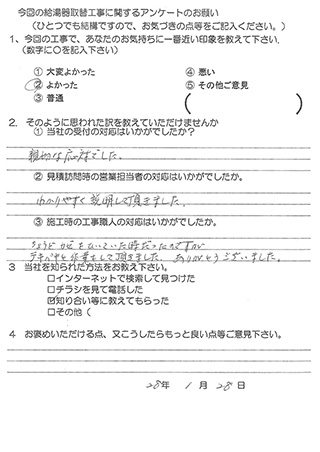 今回の給湯器取替工事に関するアンケートのお願い
(ひとつでも結構ですので、お気づきの点等をご記入ください。)
1、今回の工事で、あなたのお気持ちに一番近い印象を教えて下さい。
(数字に○を記入下さい)
① 大変よかった ④ 悪い
② よかった ⑤ その他ご意見
③ 普通 ( )
2. そのように思われた訳を教えていただけませんか
① 当社の受付の対応はいかがでしたか?
親切な応対でした。
② 見積訪問時の営業担当者の対応はいかがでしたか。
わかりやすく説明して頂きました。
③ 施工時の工事職人の対応はいかがでしたか。
ちょうどカゼをひいていた時だったのですが
テキパキと作業をして頂きました。ありがとうございました。
3 当社を知られた方法をお教え下さい。
□インターネットで検索して見つけた
□チラシを見て電話した
☑知り合い等に教えてもらった
□その他 (
4 お褒めいただける点、又こうしたらもっと良い点等ご意見下さい。
28年 1月 28日